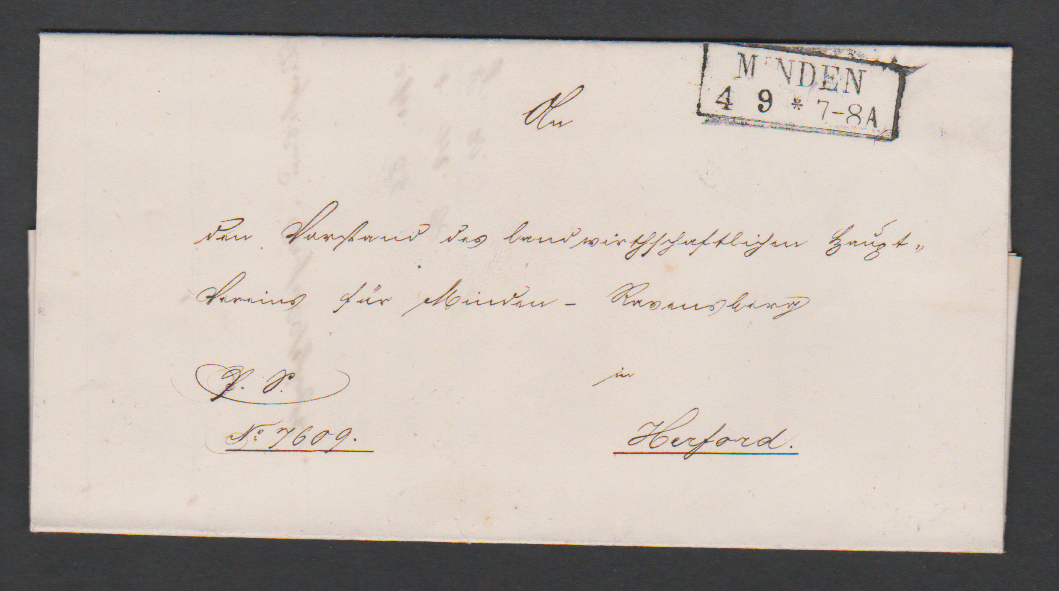 MINDEN
4 9 * 7-8A
An
den Vorstand des landwirthschaftlichen Haupt=
Vereins für Minden - Ravensberg
P. S.
in
No 7609.
Herford.